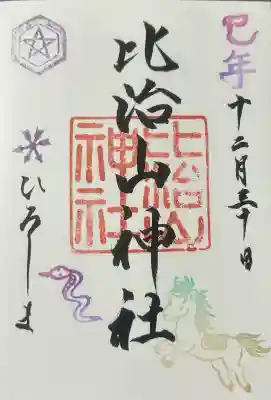 巳年
十二月三十日
比治山神社
比治山
神社
ひろしま